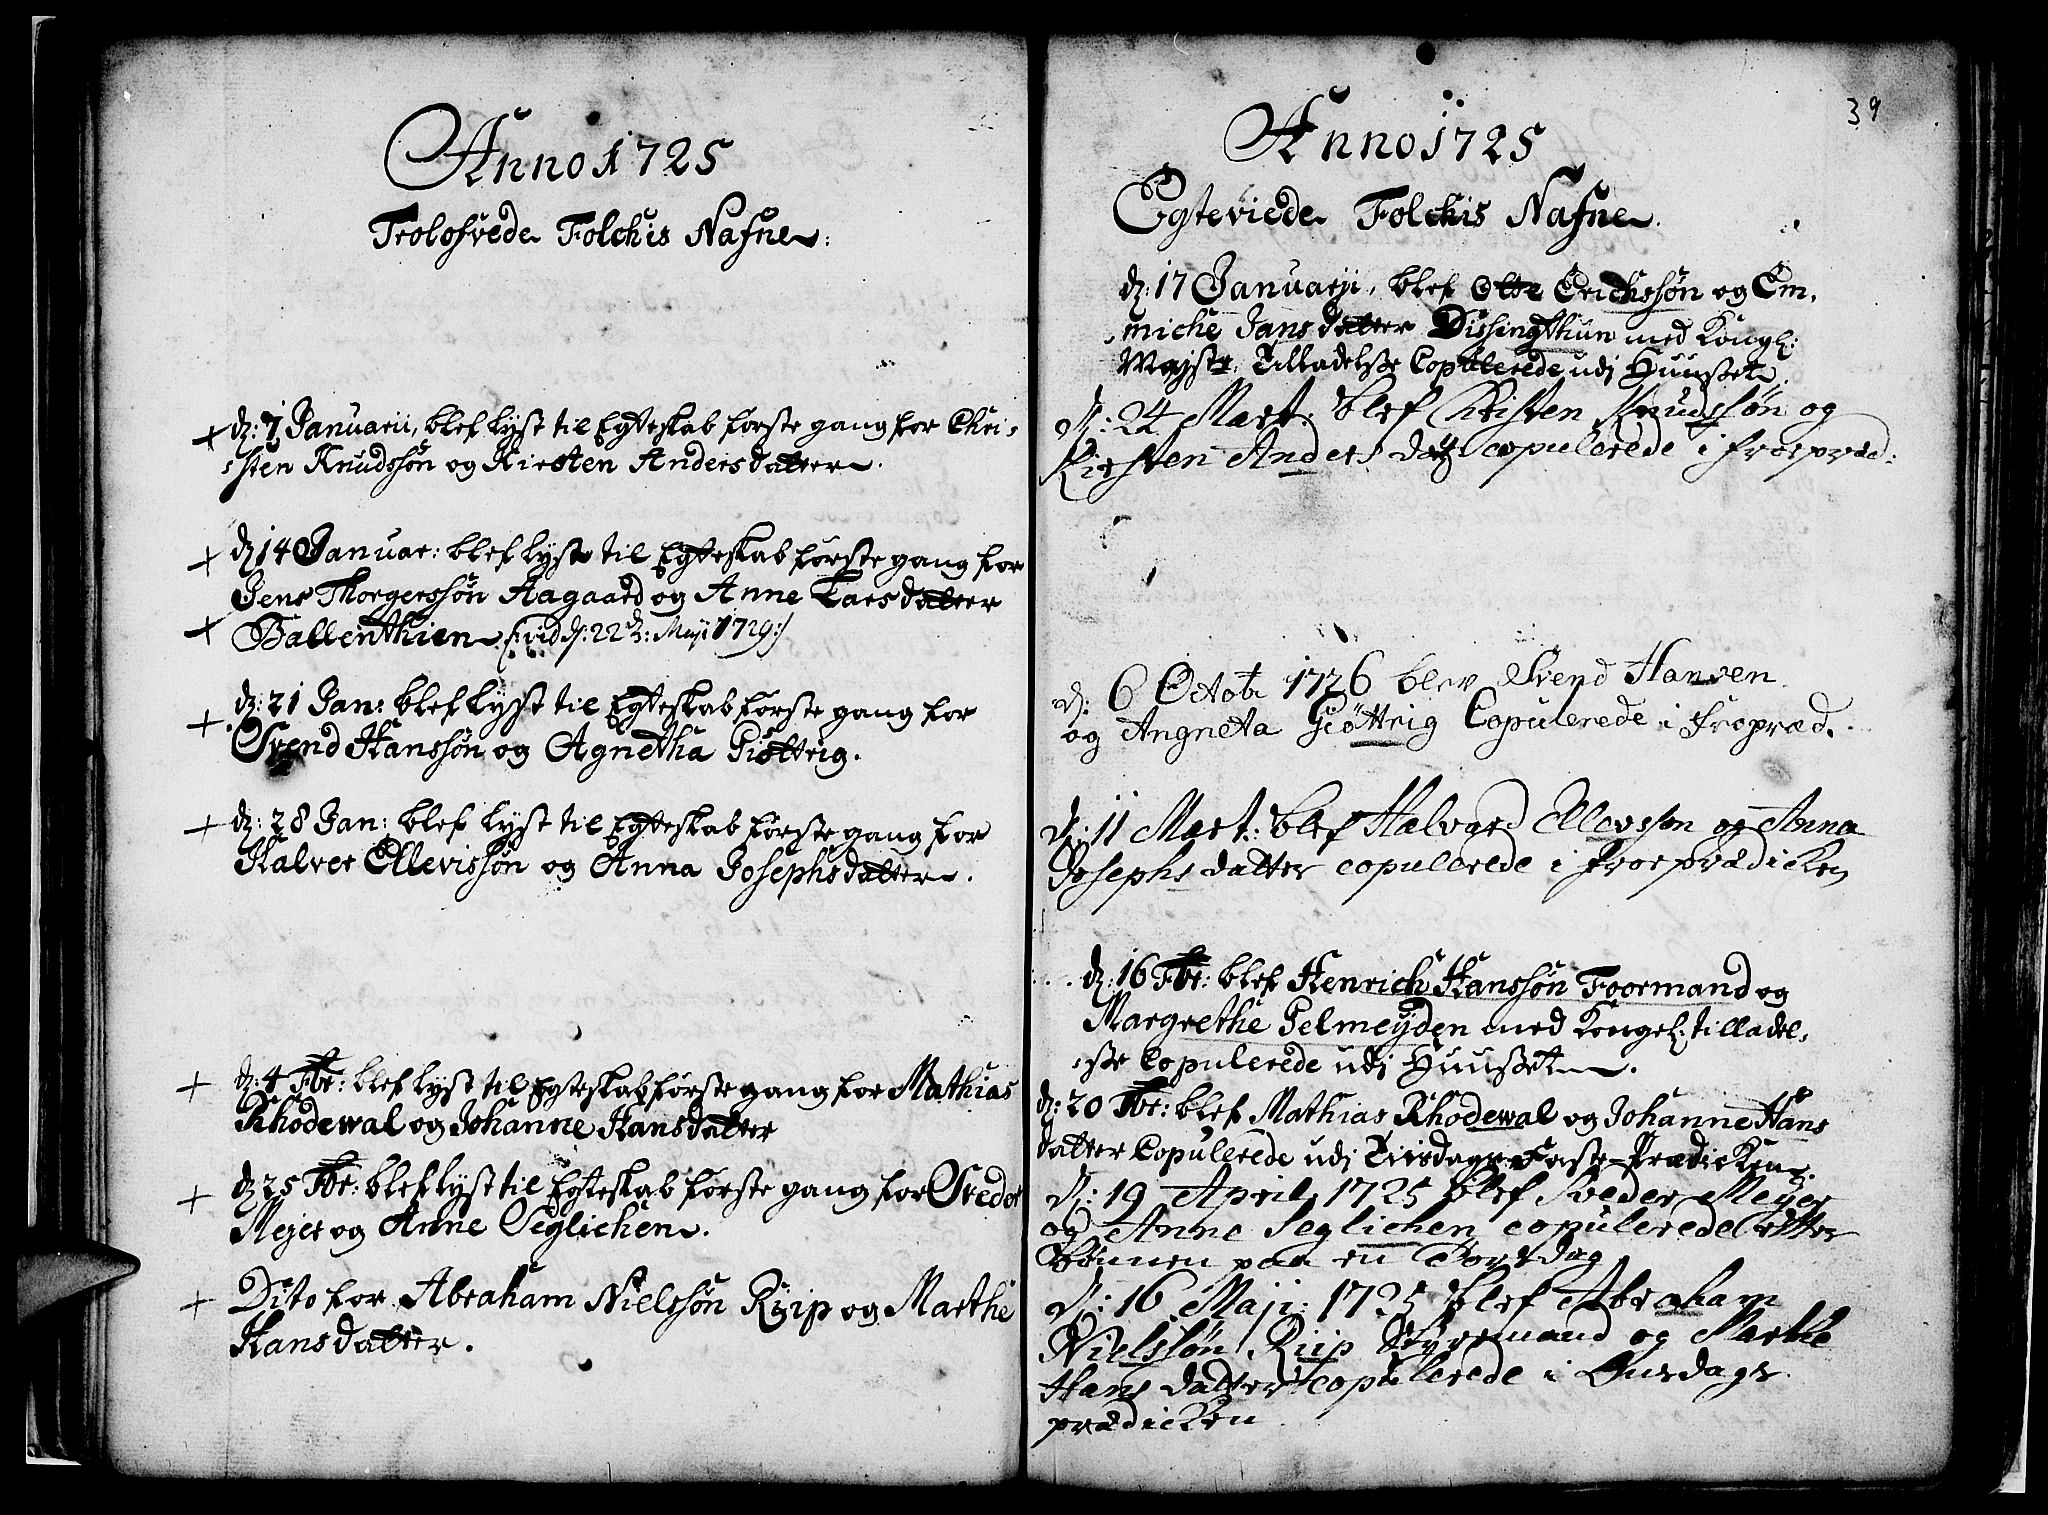 Anno 1725
Trolofvede Folchis Nafne:
d: 7 Januarii, blef lyst til Egteskab første gang for Chri-
sten Knudssøn og Kirsten Andersdatter.
d: 14 Januar: blef lyst til Egteskab første gang for
Jens Thorgerssøn Aagaard og Anne Larsdatter
Ballenthien (: vid d: 22 d: Maji 1729:)
d: 21 Jan: blef lyst til Egteskab første gang for
Svend Hanssøn og Agnetha Giøttrig.
d: 28 Jan: blef lyst til Egteskab første gang for
Halver Ellevissøn og Anna Josephsdatter.
d: 4 Fbr: blef lyst til Egteskab første gang for Mathias
Rhodewal og Johanne Hansdatter
d: 25 Fbr: blef lyst til Egteskab første gang for Sveder
Mejer og Anne Seglichen.
Dito for Abraham Nielssøn Riip og Marthe
Hansdatter.
39
Anno 1725
Egteviede Folchis Nafne.
d: 17 Januarji, blef Otte Erichssøn og Em-
miche Jansdatter Dissingthun med Kongl:
Mayst: Tilladelsse Copulerede udj Huusset.
d: 24 Mart: blef Christen Knudssøn og
Kirsten Anders datt copulerede i froepræd:
d: 6 Octob 1726 blev Svend Hansen
og Angneta Giöttrig Copulerede i Fropræd.
d: 11 Mart: blef Halvard Ellevsson og Anna
Josephs datter copulerede i froeprædicken
d: 16 Fbr: blef Henrich Hanssøn Foormand og
Margrethe Pelmeyden med Kongel: tilladel-
sse Copulerede udj Huusset.
d: 20 Fbr: blef Mathias Rhodewal og Johanne Hans
datter Copulerede udj Tiisdags Faste-Prædicken.
d: 19 April 1725 blef Sveder Meyer
og Anne Seglichen copulerede etter
bønnen paa en Torsdag
d: 16 Maji: 1725 blef Abraham
Nielssøn Riip Styrmand og Marthe
Hans datter copulerede i Onsdags
prædicken